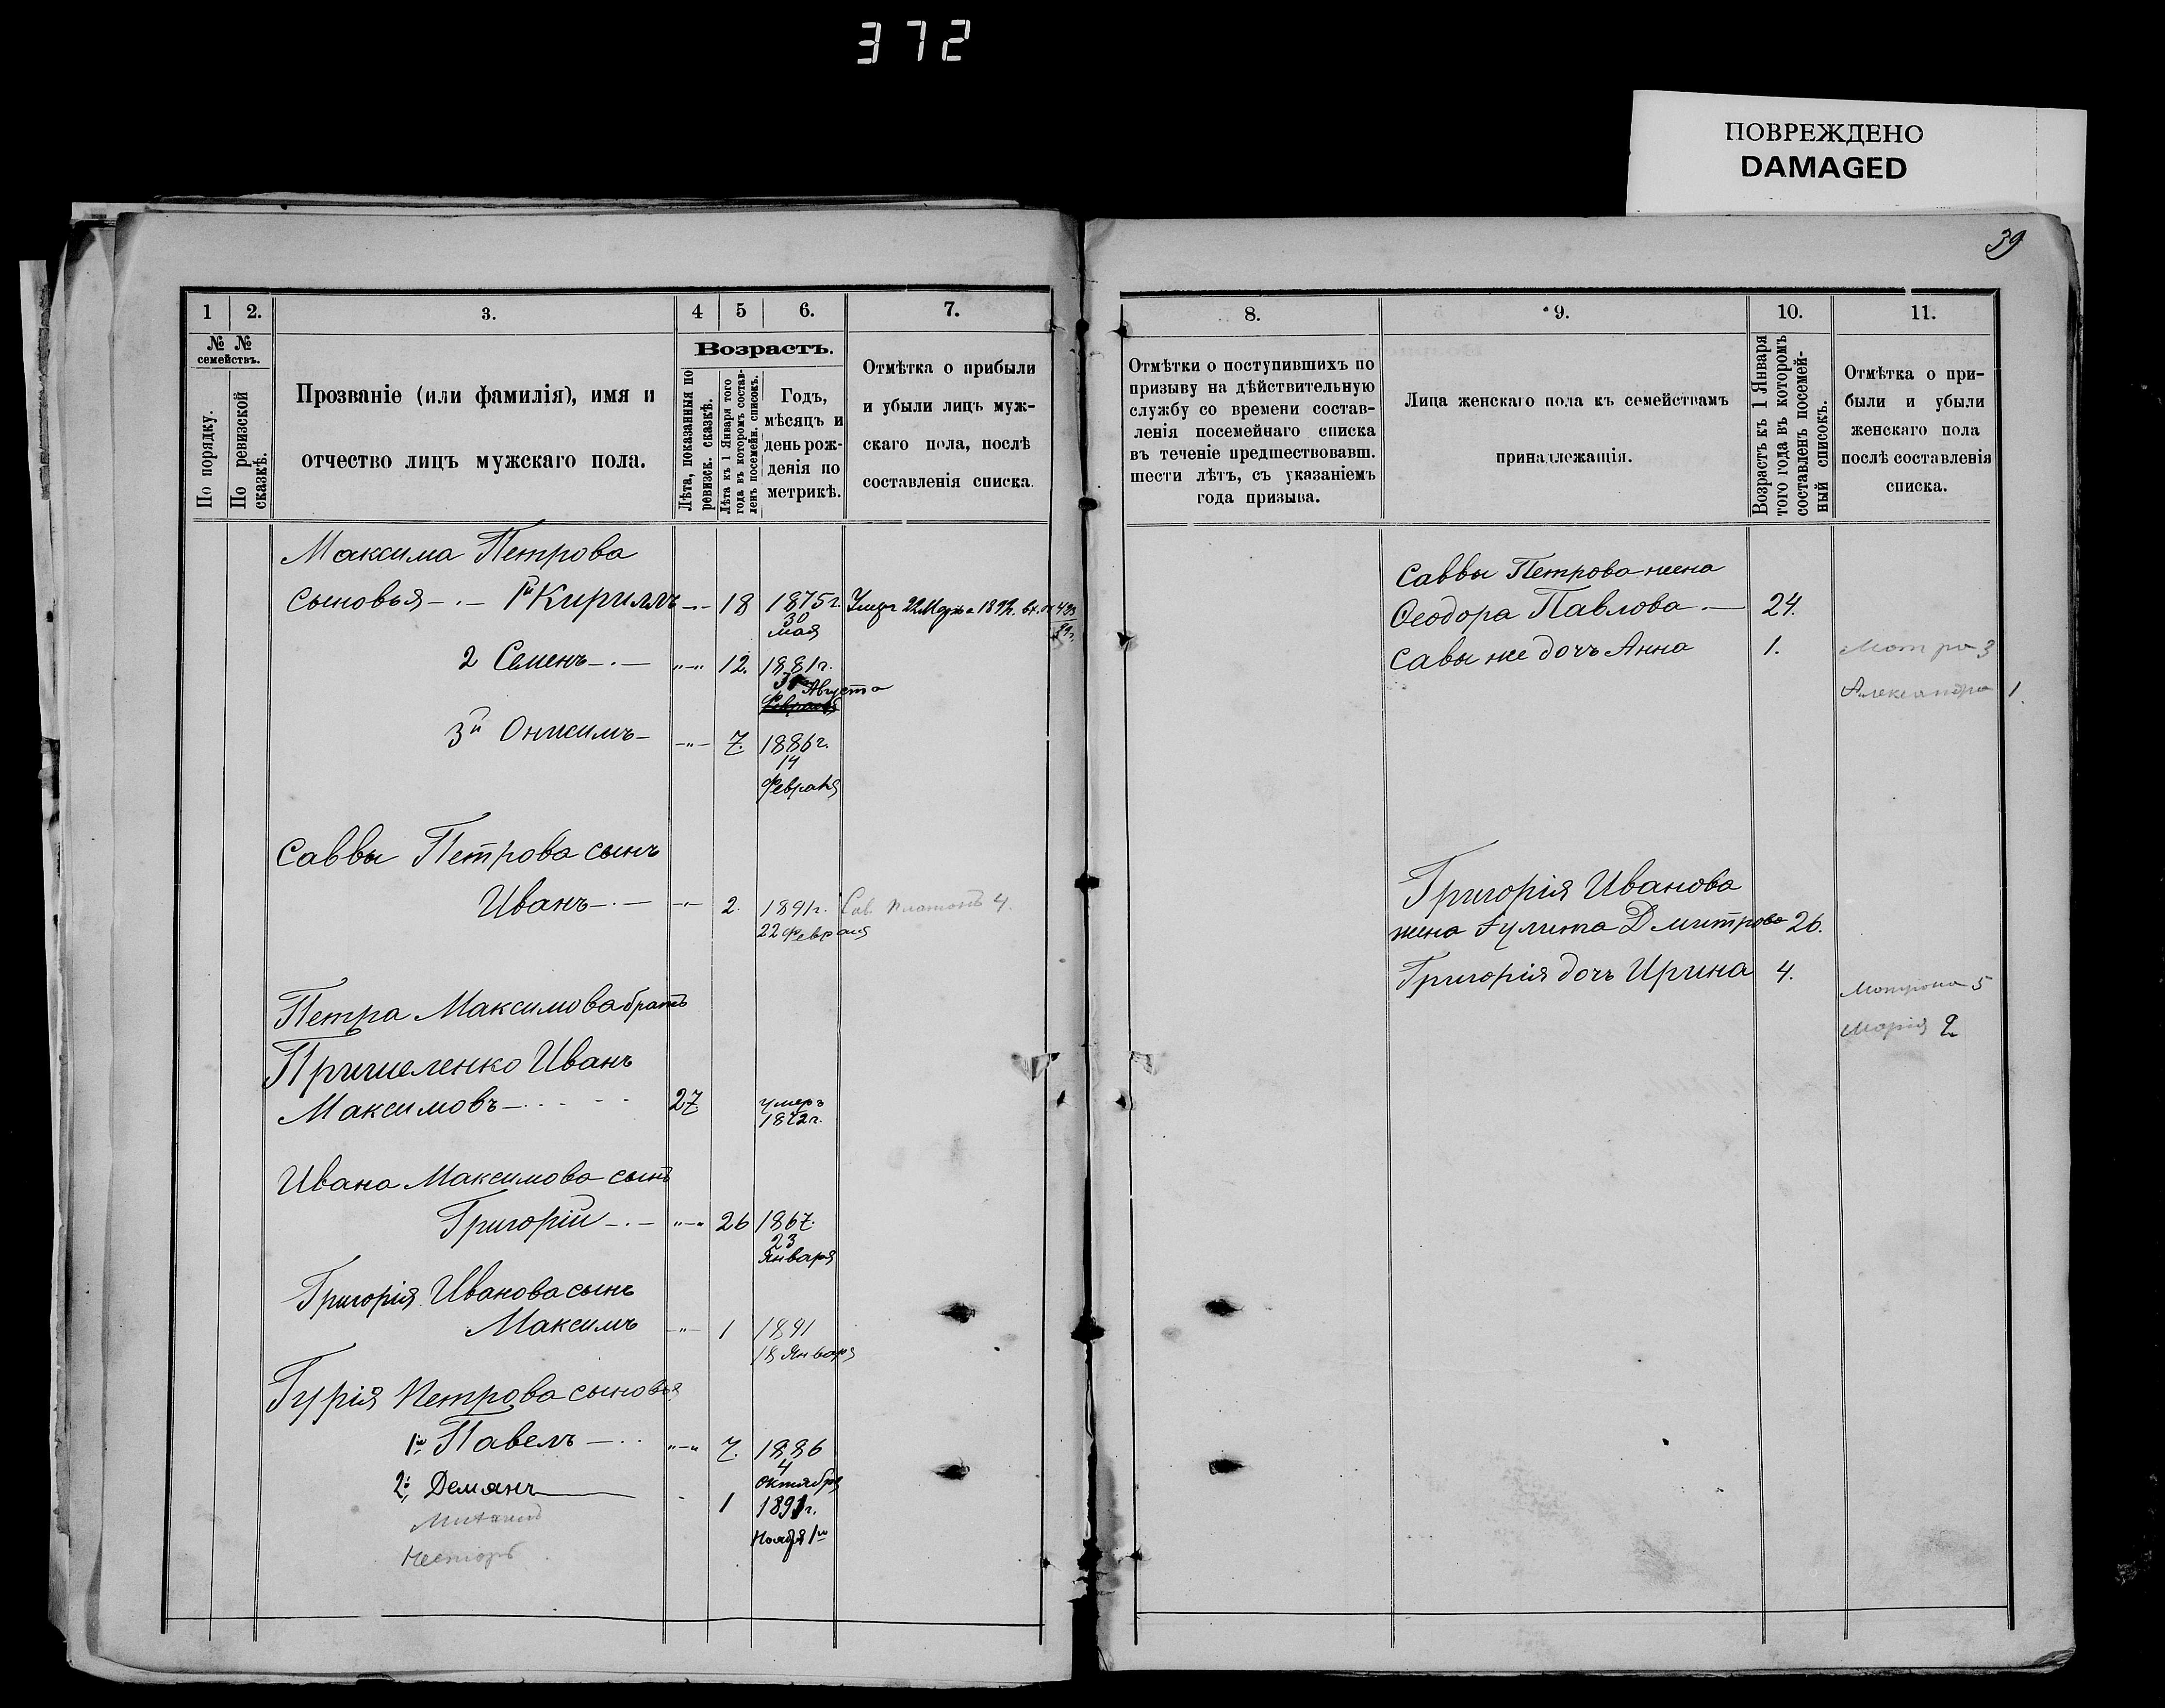 372
ПОВРЕЖДЕНО
DAMAGED
39
1 2. 3. 4 5 6. 7.
№ №
семействъ.
По порядку.
По ревизской
сказкѣ.
Прозваніе (или фамилія), имя и
отчество лицъ мужскаго пола.
Возрастъ.
Лѣта, показанныя по
ревизск. сказкѣ.
Лѣта къ 1 Января того
года въ которомъ состав-
ленъ посемейн. списокъ.
Годъ,
мѣсяцъ и
день рож-
денія по
метрикѣ.
Отмѣтка о прибыли
и убыли лицъ муж-
скаго пола, послѣ
составленія списка.
Максима Петрова
сыновья 1й Кириллъ 18 1875 г.
30
мая
2 Семенъ 12. 1881 г.
Августа
3й Онисимъ 7. 1886 г.
14
Февраля
Саввы Петрова сынъ
Иванъ 2. 1891 г. Платонъ 4.
22 Февраля
Петра Максимова братъ
Иванъ
Максимовъ 27 умеръ
1872 г.
Ивана Максимова сынъ
Григорій 26 1867.
23
Января
Григорія Иванова сынъ
Максимъ 1 1891
18 Января
Гурія Петрова сыновья
1й Павелъ 7. 1886
4
Октября
2й Демянъ 1 1891 г.
Ноября 1го
Несторъ
8. 9. 10. 11.
Отмѣтки о поступившихъ по
призыву на дѣйствительную
службу со времени состав-
ленія посемейнаго списка
въ теченіе предшествовавш.
шести лѣтъ, съ указаніемъ
года призыва.
Лица женскаго пола къ семействамъ
принадлежащія.
Возрастъ къ 1 Января
того года въ которомъ
составленъ посемей-
ный списокъ.
Отмѣтка о при-
были и убыли
женскаго пола
послѣ составленія
списка.
Саввы Петрова жена
Феодора Павлова 24.
Савы же дочь Анна 1. Мотра 3
Александра 1.
Григорія Иванова
жена Дмитрова 26.
Григорія дочь Ирина 4.
Мотрона 5
Марія 2